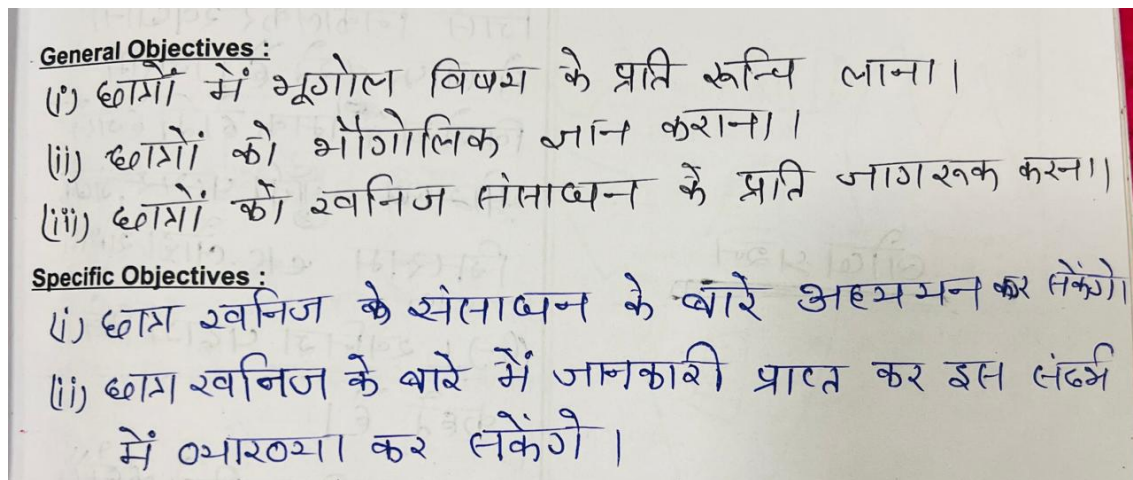 General Objectives :
(i) छात्रों में भूगोल विषय के प्रति रूचि लाना।
(ii) छात्रों को भौगोलिक ज्ञान कराना।
(iii) छात्रों को खनिज संसाधन के प्रति जागरूक करना।
Specific Objectives :
(i) छात्र खनिज के संसाधन के बारे अध्ययन कर सकेंगे।
(ii) छात्र खनिज के बारे में जानकारी प्राप्त कर इस संदर्भ
में व्याख्या कर सकेंगे।